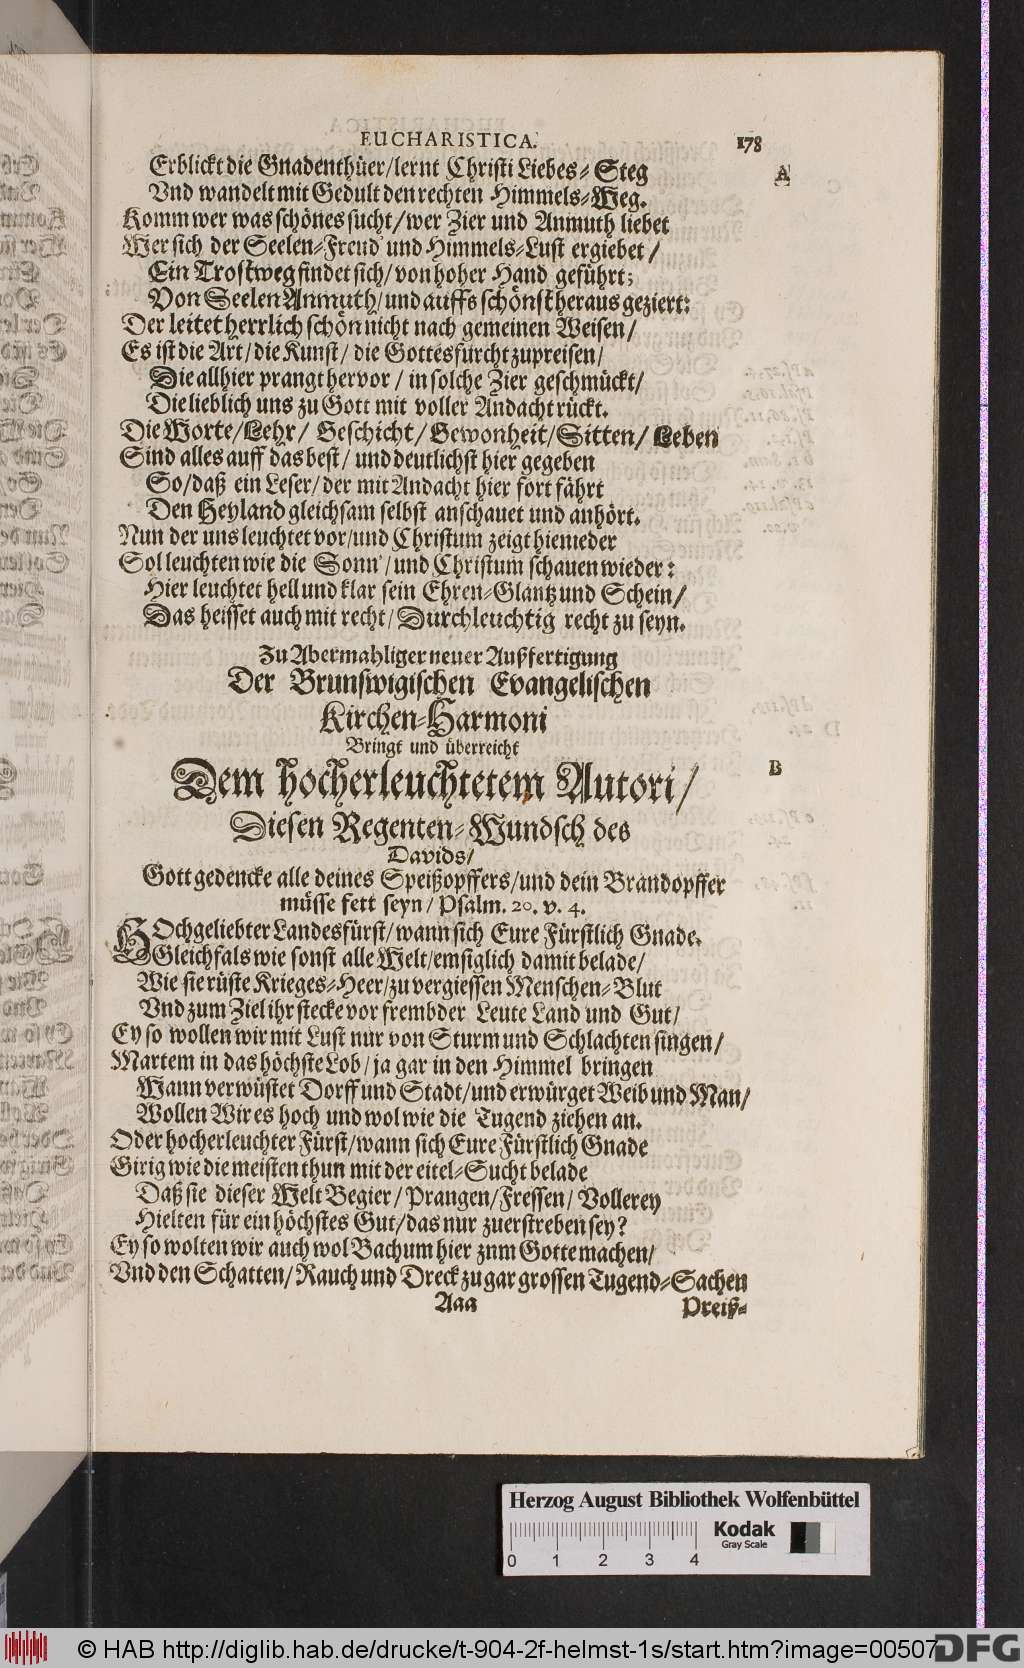 EUCHARISTICA. 178
Erblickt die Gnadenthüer/lernt Christi Liebes-Steg
A
Vnd wandelt mit Gedult den rechten Himmels-Weg.
Komm wer was schönes sucht/wer Zier und Anmuth liebet
Wer sich der Seelen-Freud und Himmels-Lust ergiebet/
Ein Trostweg findet sich/von hoher Hand geführt;
Von Seelen Anmuth/und auffs schönst heraus geziert:
Der leitet herrlich schön nicht nach gemeinen Weisen/
Es ist die Art/die Kunst/die Gottesfurcht zupreisen/
Die allhier prangt hervor/in solche Zier geschmückt/
Die lieblich uns zu Gott mit voller Andacht rückt.
Die Worte/Lehr/Geschicht/Gewonheit/Sitten/Leben
Sind alles auff das best/und deutlichst hier gegeben
So/daß ein Leser/der mit Andacht hier fort fährt
Den Heyland gleichsam selbst anschauet und anhört.
Nun der uns leuchtet vor/und Christum zeigt hienieder
Sol leuchten wie die Sonn'/und Christum schauen wieder:
Hier leuchtet hell und klar sein Ehren-Glantz und Schein/
Das heisset auch mit recht/Durchleuchtig recht zu seyn.
Zu Abermahliger neuer Außfertigung
Der Brunswigischen Evangelischen
Kirchen-Harmoni
Bringt und überreicht
Dem hocherleuchtetem Autori/
B
Diesen Regenten-Wundsch des
Davids/
Gott gedencke alle deines Speißopffers/und dein Brandopffer
müsse fett seyn/Psalm. 20. v. 4.
HOchgeliebter Landesfürst/wann sich Eure Fürstlich Gnade.
Gleichfals wie sonst alle Welt/emsiglich damit belade/
Wie sie rüste Krieges-Heer/zu vergiessen Menschen-Blut
Vnd zum Ziel ihr stecke vor frembder Leute Land und Gut/
Ey so wollen wir mit Lust nur von Sturm und Schlachten singen/
Martem in das höchste Lob/ja gar in den Himmel bringen
Wann verwüstet Dorff und Stadt/und erwürget Weib und Man/
Wollen Wir es hoch und wol wie die Tugend ziehen an.
Oder hocherleuchter Fürst/wann sich Eure Fürstlich Gnade
Girig wie die meisten thun mit der eitel-Sucht belade
Daß sie dieser Welt Begier/Prangen/Fressen/Vollerey
Hielten für ein höchstes Gut/das nur zuerstreben sey?
Ey so wolten wir auch wol Bachum hier znm Gotte machen/
Vnd den Schatten/Rauch und Dreck zu gar grossen Tugend-Sachen
Aaa Preiß-
Herzog August Bibliothek Wolfenbüttel
Kodak
Gray Scale
0 1 2 3 4
© HAB http://diglib.hab.de/drucke/t-904-2f-helmst-1s/start.htm?image=00507
DFG